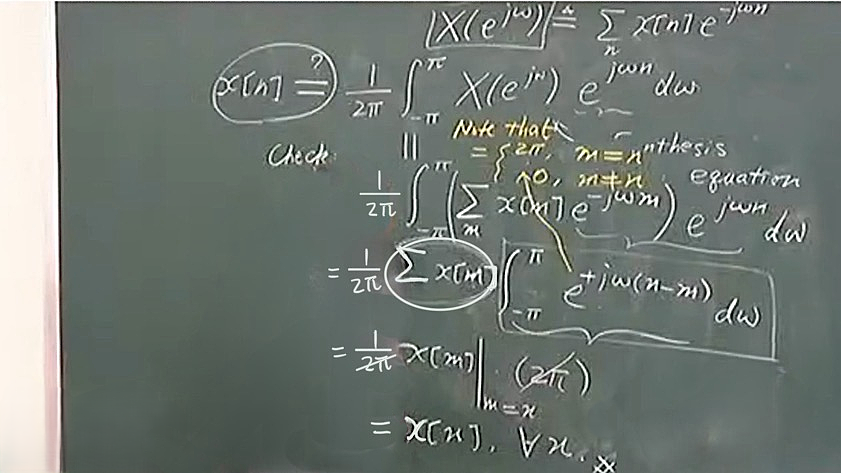 |X(e^{jω})| ≜ Σ_n x[n] e^{-jωn}
x[n] ≟ 1/2π ∫_{-π}^{π} X(e^{jω}) e^{jωn} dω
Note that
Check: || = { 2π, m=n nthesis
0, m≠n equation
1/2π ∫_{-π}^{π} (Σ_m x[m] e^{-jωm}) e^{jωn} dω
= 1/2π Σ x[m] ∫_{-π}^{π} e^{+jω(n-m)} dω
= 1/2π x[m]|_{m=n} · (2π)
= x[n], ∀n. ※